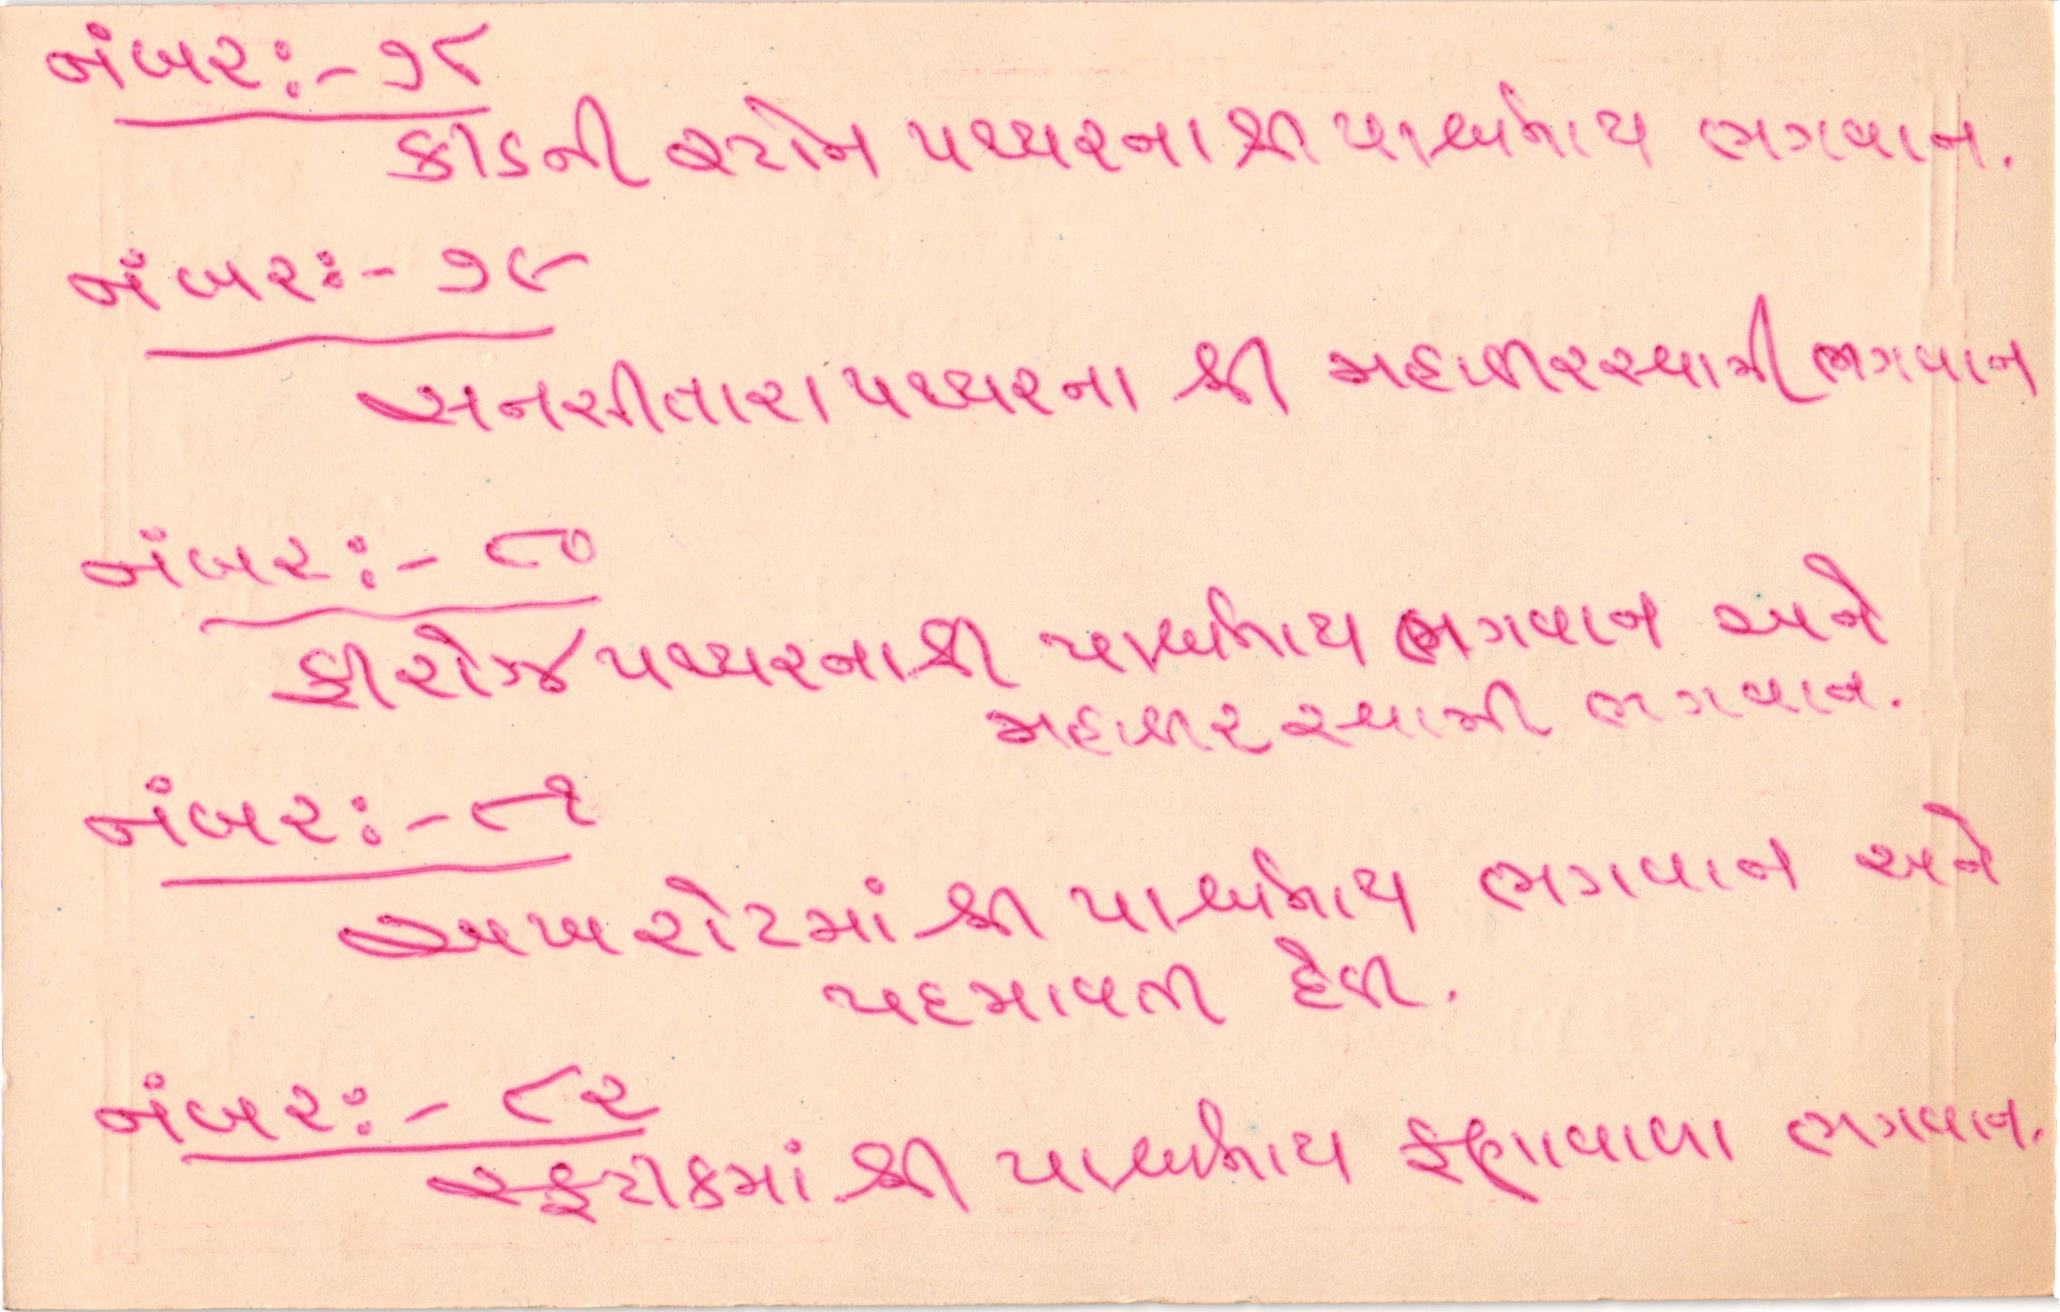 નંબર:- ૭૮
કીડની સ્ટોન પથ્થરના શ્રી પાર્શ્વનાથ ભગવાન.
નંબર:- ૭૯
સનસીતારા પથ્થરના શ્રી મહાવીરસ્વામી ભગવાન
નંબર:- ૮૦
ફીરોજ પથ્થરના શ્રી પાર્શ્વનાથ ભગવાન અને
મહાવીરસ્વામી ભગવાન.
નંબર:- ૮૧
અખરોટમાં શ્રી પાર્શ્વનાથ ભગવાન અને
પદમાવતી દેવી.
નંબર:- ૮૨
સ્ફટીકમાં શ્રી પાર્શ્વનાથ ફણાવાળા ભગવાન.